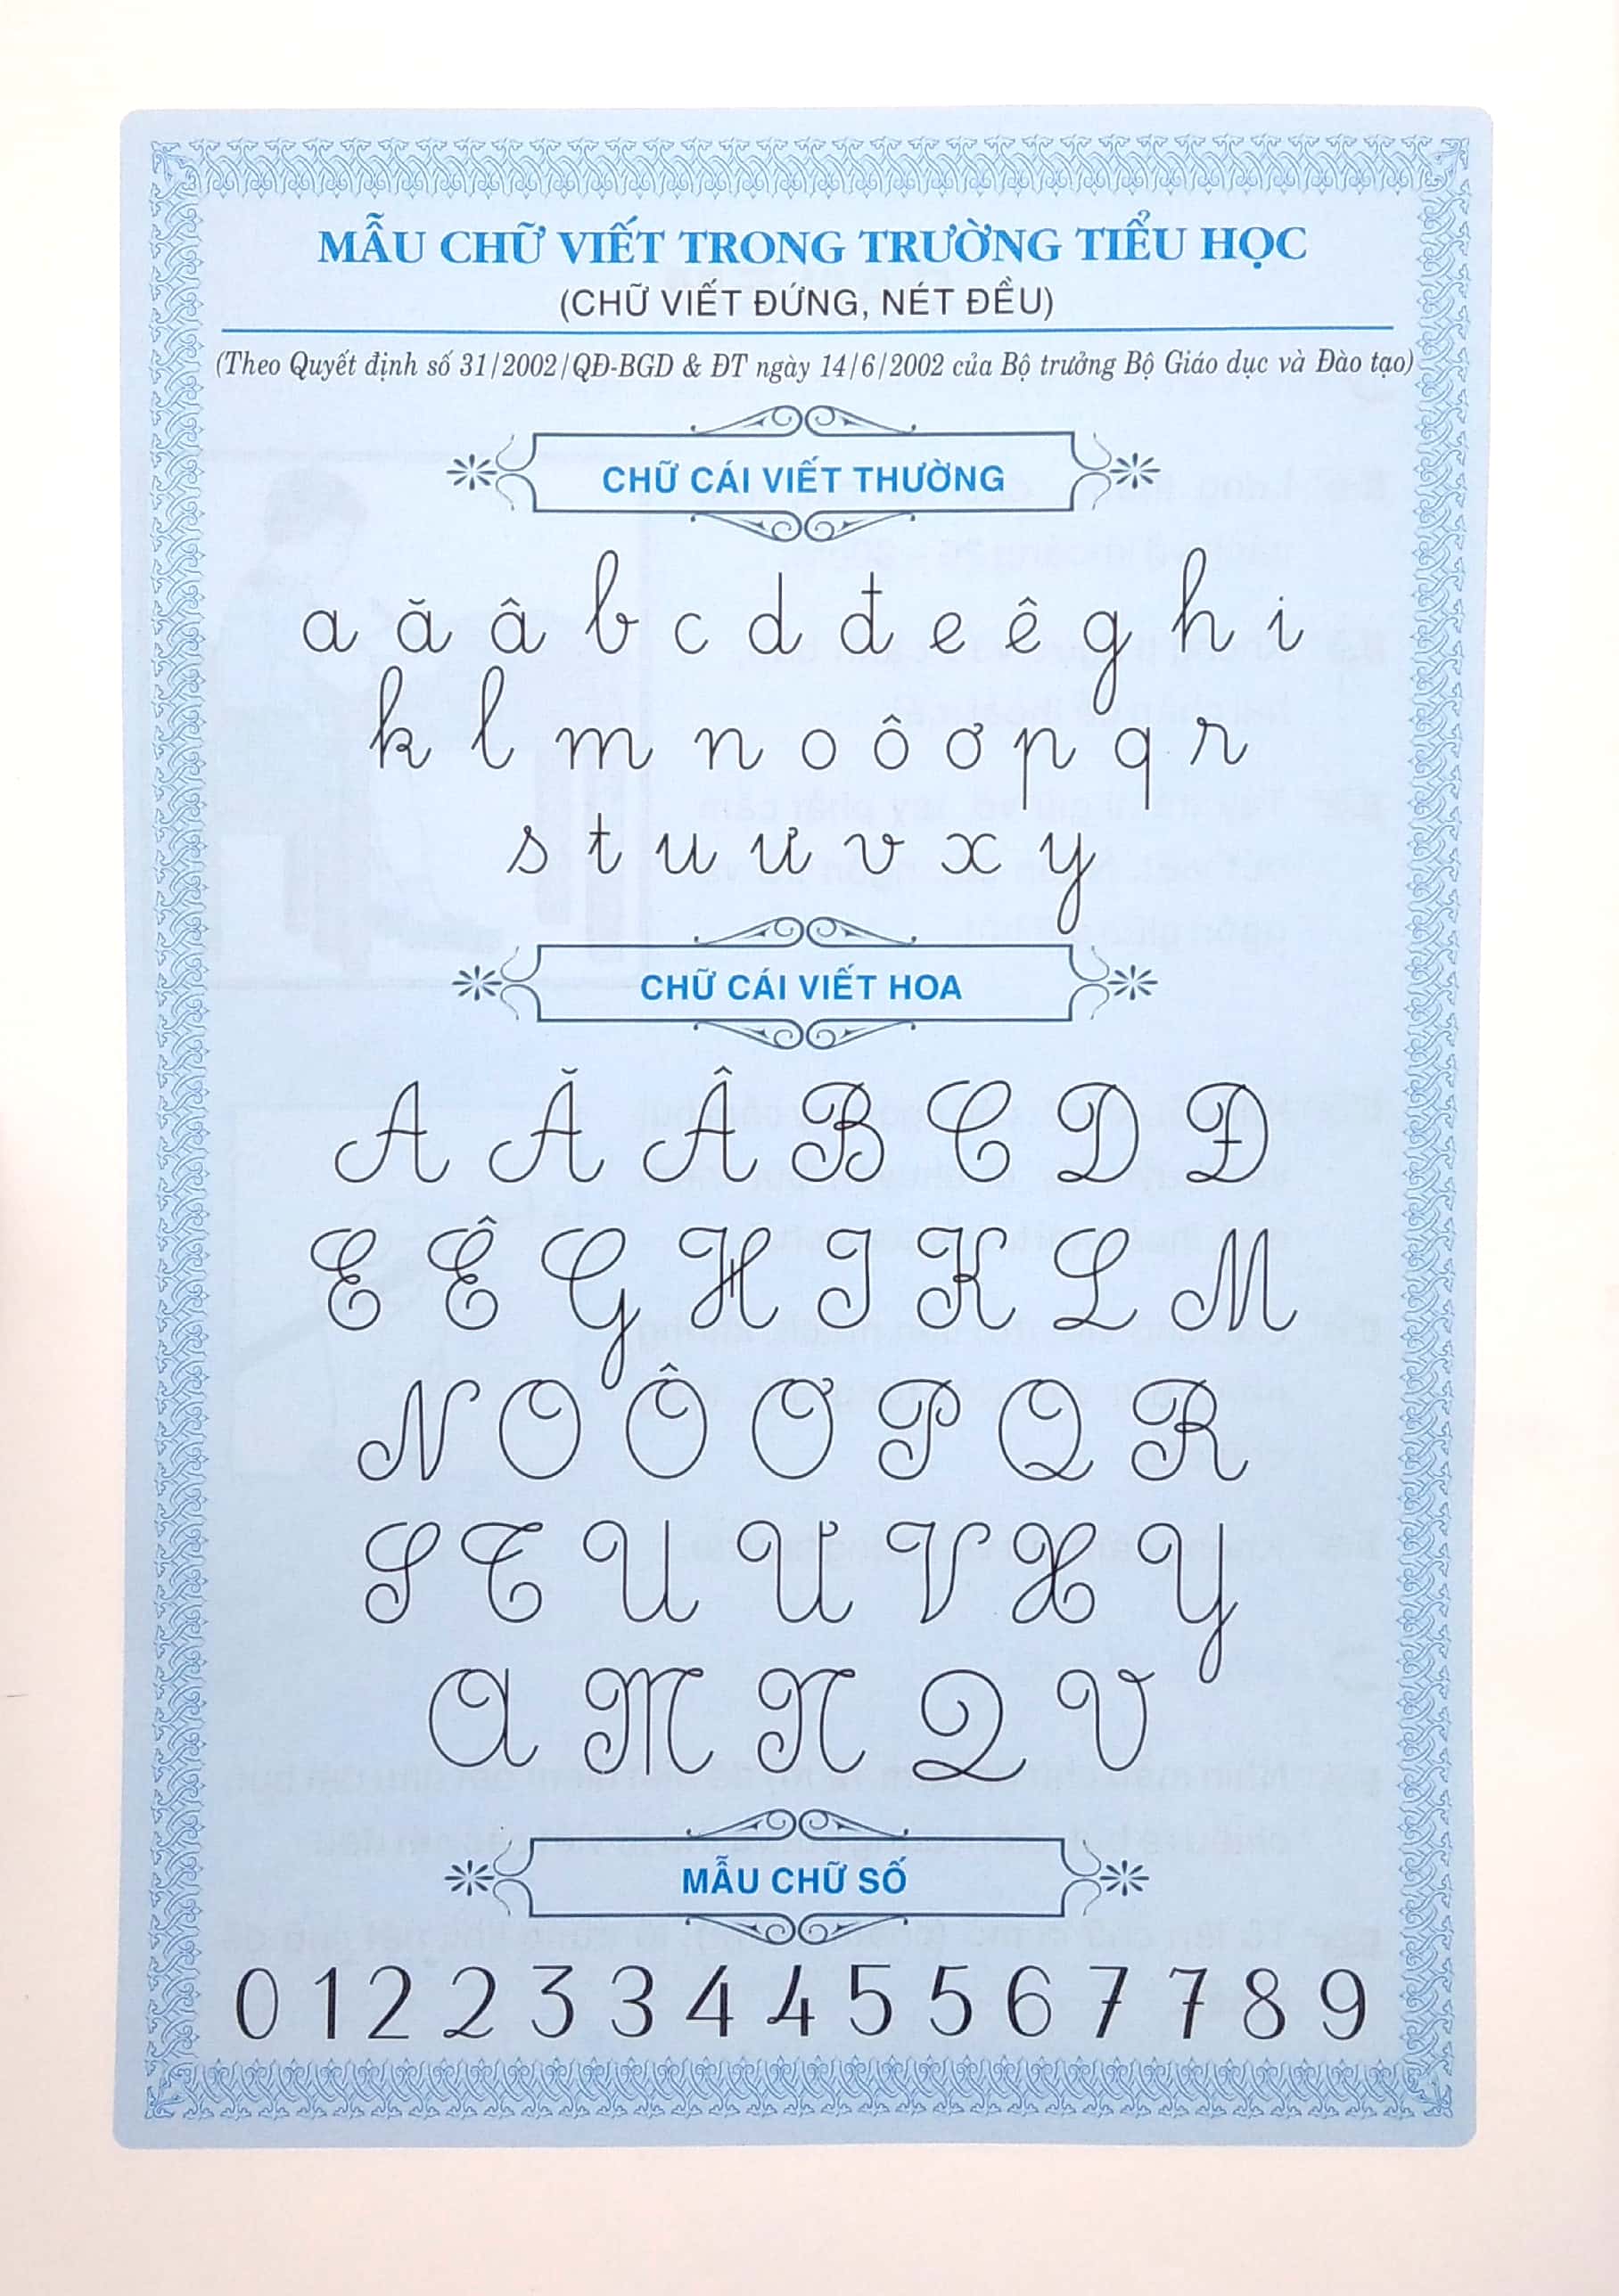 MẪU CHỮ VIẾT TRONG TRƯỜNG TIỂU HỌC
(CHỮ VIẾT ĐỨNG, NÉT ĐỀU)
(Theo Quyết định số 31/2002/QĐ-BGD & ĐT ngày 14/6/2002 của Bộ trưởng Bộ Giáo dục và Đào tạo)
CHỮ CÁI VIẾT THƯỜNG
a ă â b c d đ e ê g h i
k l m n o ô ơ p q r
s t u ư v x y
CHỮ CÁI VIẾT HOA
A Ă Â B C D Đ
E Ê G H I K L M
N O Ô Ơ P Q R
S T U Ư V X Y
A M N Q V
MẪU CHỮ SỐ
0 1 2 2 3 3 4 4 5 5 6 7 7 8 9